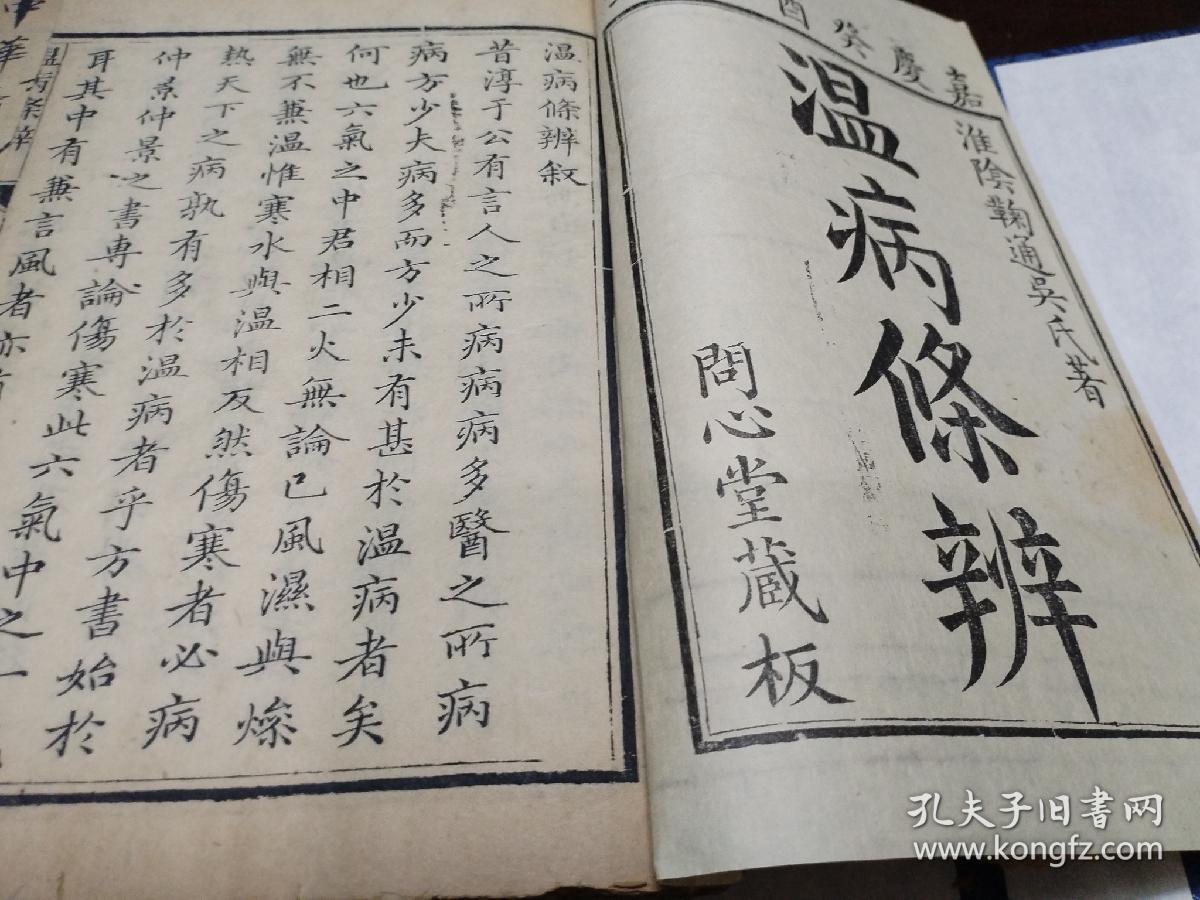 嘉慶癸酉
淮陰鞠通吳氏著
温病條辨
問心堂藏板
温病條辨敘
昔淳于公有言人之所病病病多醫之所病
病方少夫病多而方少未有甚於温病者矣
何也六氣之中君相二火無論已風濕與燥
無不兼温惟寒水與温相反然傷寒者必病
熱天下之病孰有多於温病者乎方書始於
仲景仲景之書専論傷寒此六氣中之一
耳其中有兼言風者亦
温病條辨
中華
孔夫子旧书网
www.kongfz.com